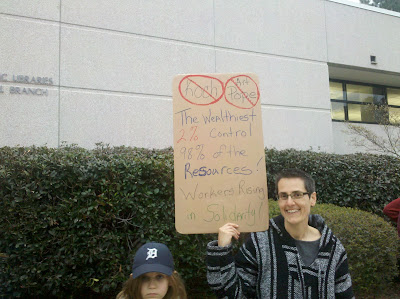 IC LIBRARIES
L BRANCH
Koch
Art
Pope
The Wealthiest
2% Control
98% of the
Resources!
Workers Rising
in Solidarity!
D